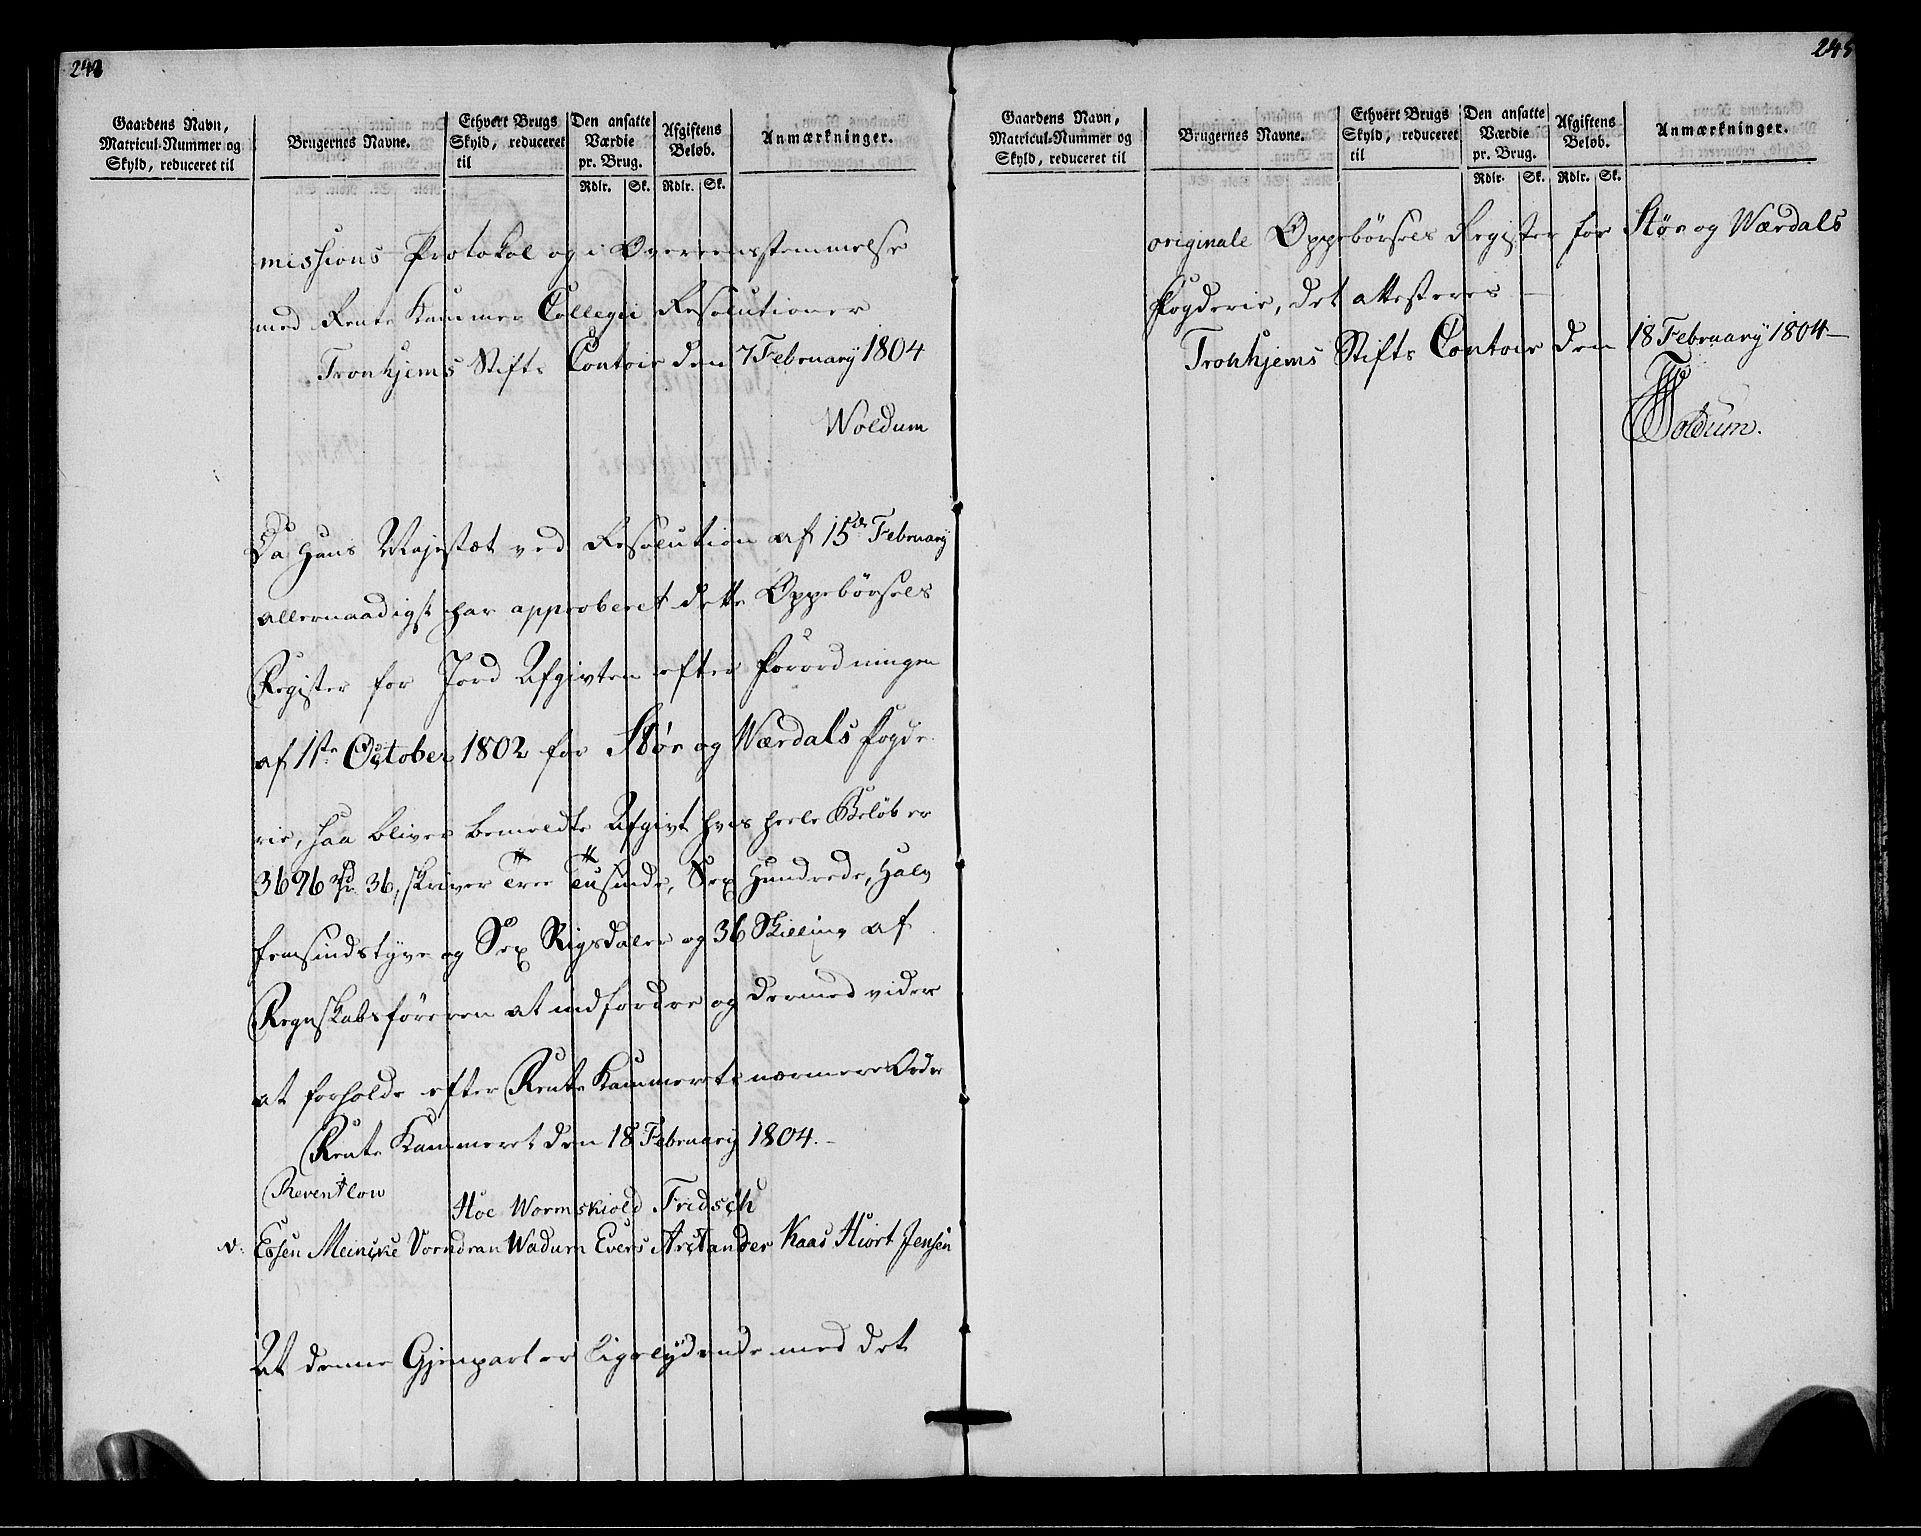 244
Gaardens Navn,
Matricul-Nummer og
Skyld, reduceret til
Brugernes Navne.
Ethvert Brugs
Skyld, reduceret
til
Den ansatte
Værdie
pr. Brug.
Rdlr. Sk.
Afgiftens
Beløb.
Rdlr. Sk.
Anmærkninger.
missions Protokol og i Overeensstemmelse
med Rente Kammer Collegii Resolutioner
Tronhjems Stifts Contoir den 7 February 1804
Woldum
Da Hans Majestæt ved Resolution af 15de February
allernaadigst har approberet dette Oppebørsels
Register for Jord Afgivten efter Forordningen
af 1ste October 1802 for Stør og Værdals Fogde
rie, saa bliver bemeldte Afgivt hvis heele Beløb er
3696 rd 36, skriver Tree Tusinde, Sex Hundrede, Halv
femsindstyve og Sex Rigsdaler og 36 Skilling af
Regnskabsføreren at indfordre og dermed videre
at forholde efter Rente Kammerets nærmere Ordre
Rente Kammeret den 18 February 1804.-
Reventlow
Hoe Wormskiold Fridsch
v: Essen Meincke Vorndran Wadum Evers Arctander Kaas Hiort Jensen
At denne Gjenpart er Ligelydende med det
245
Gaardens Navn,
Matricul-Nummer og
Skyld, reduceret til
Brugernes Navne.
Ethvert Brugs
Skyld, reduceret
til
Den ansatte
Værdie
pr. Brug.
Rdlr. Sk.
Afgiftens
Beløb.
Rdlr. Sk.
Anmærkninger.
originale Oppebørsels Register for Stør og Værdals
Fogderie, det attesteres -
Tronhjems Stifts Contoir den 18 February 1804-
Woldum.